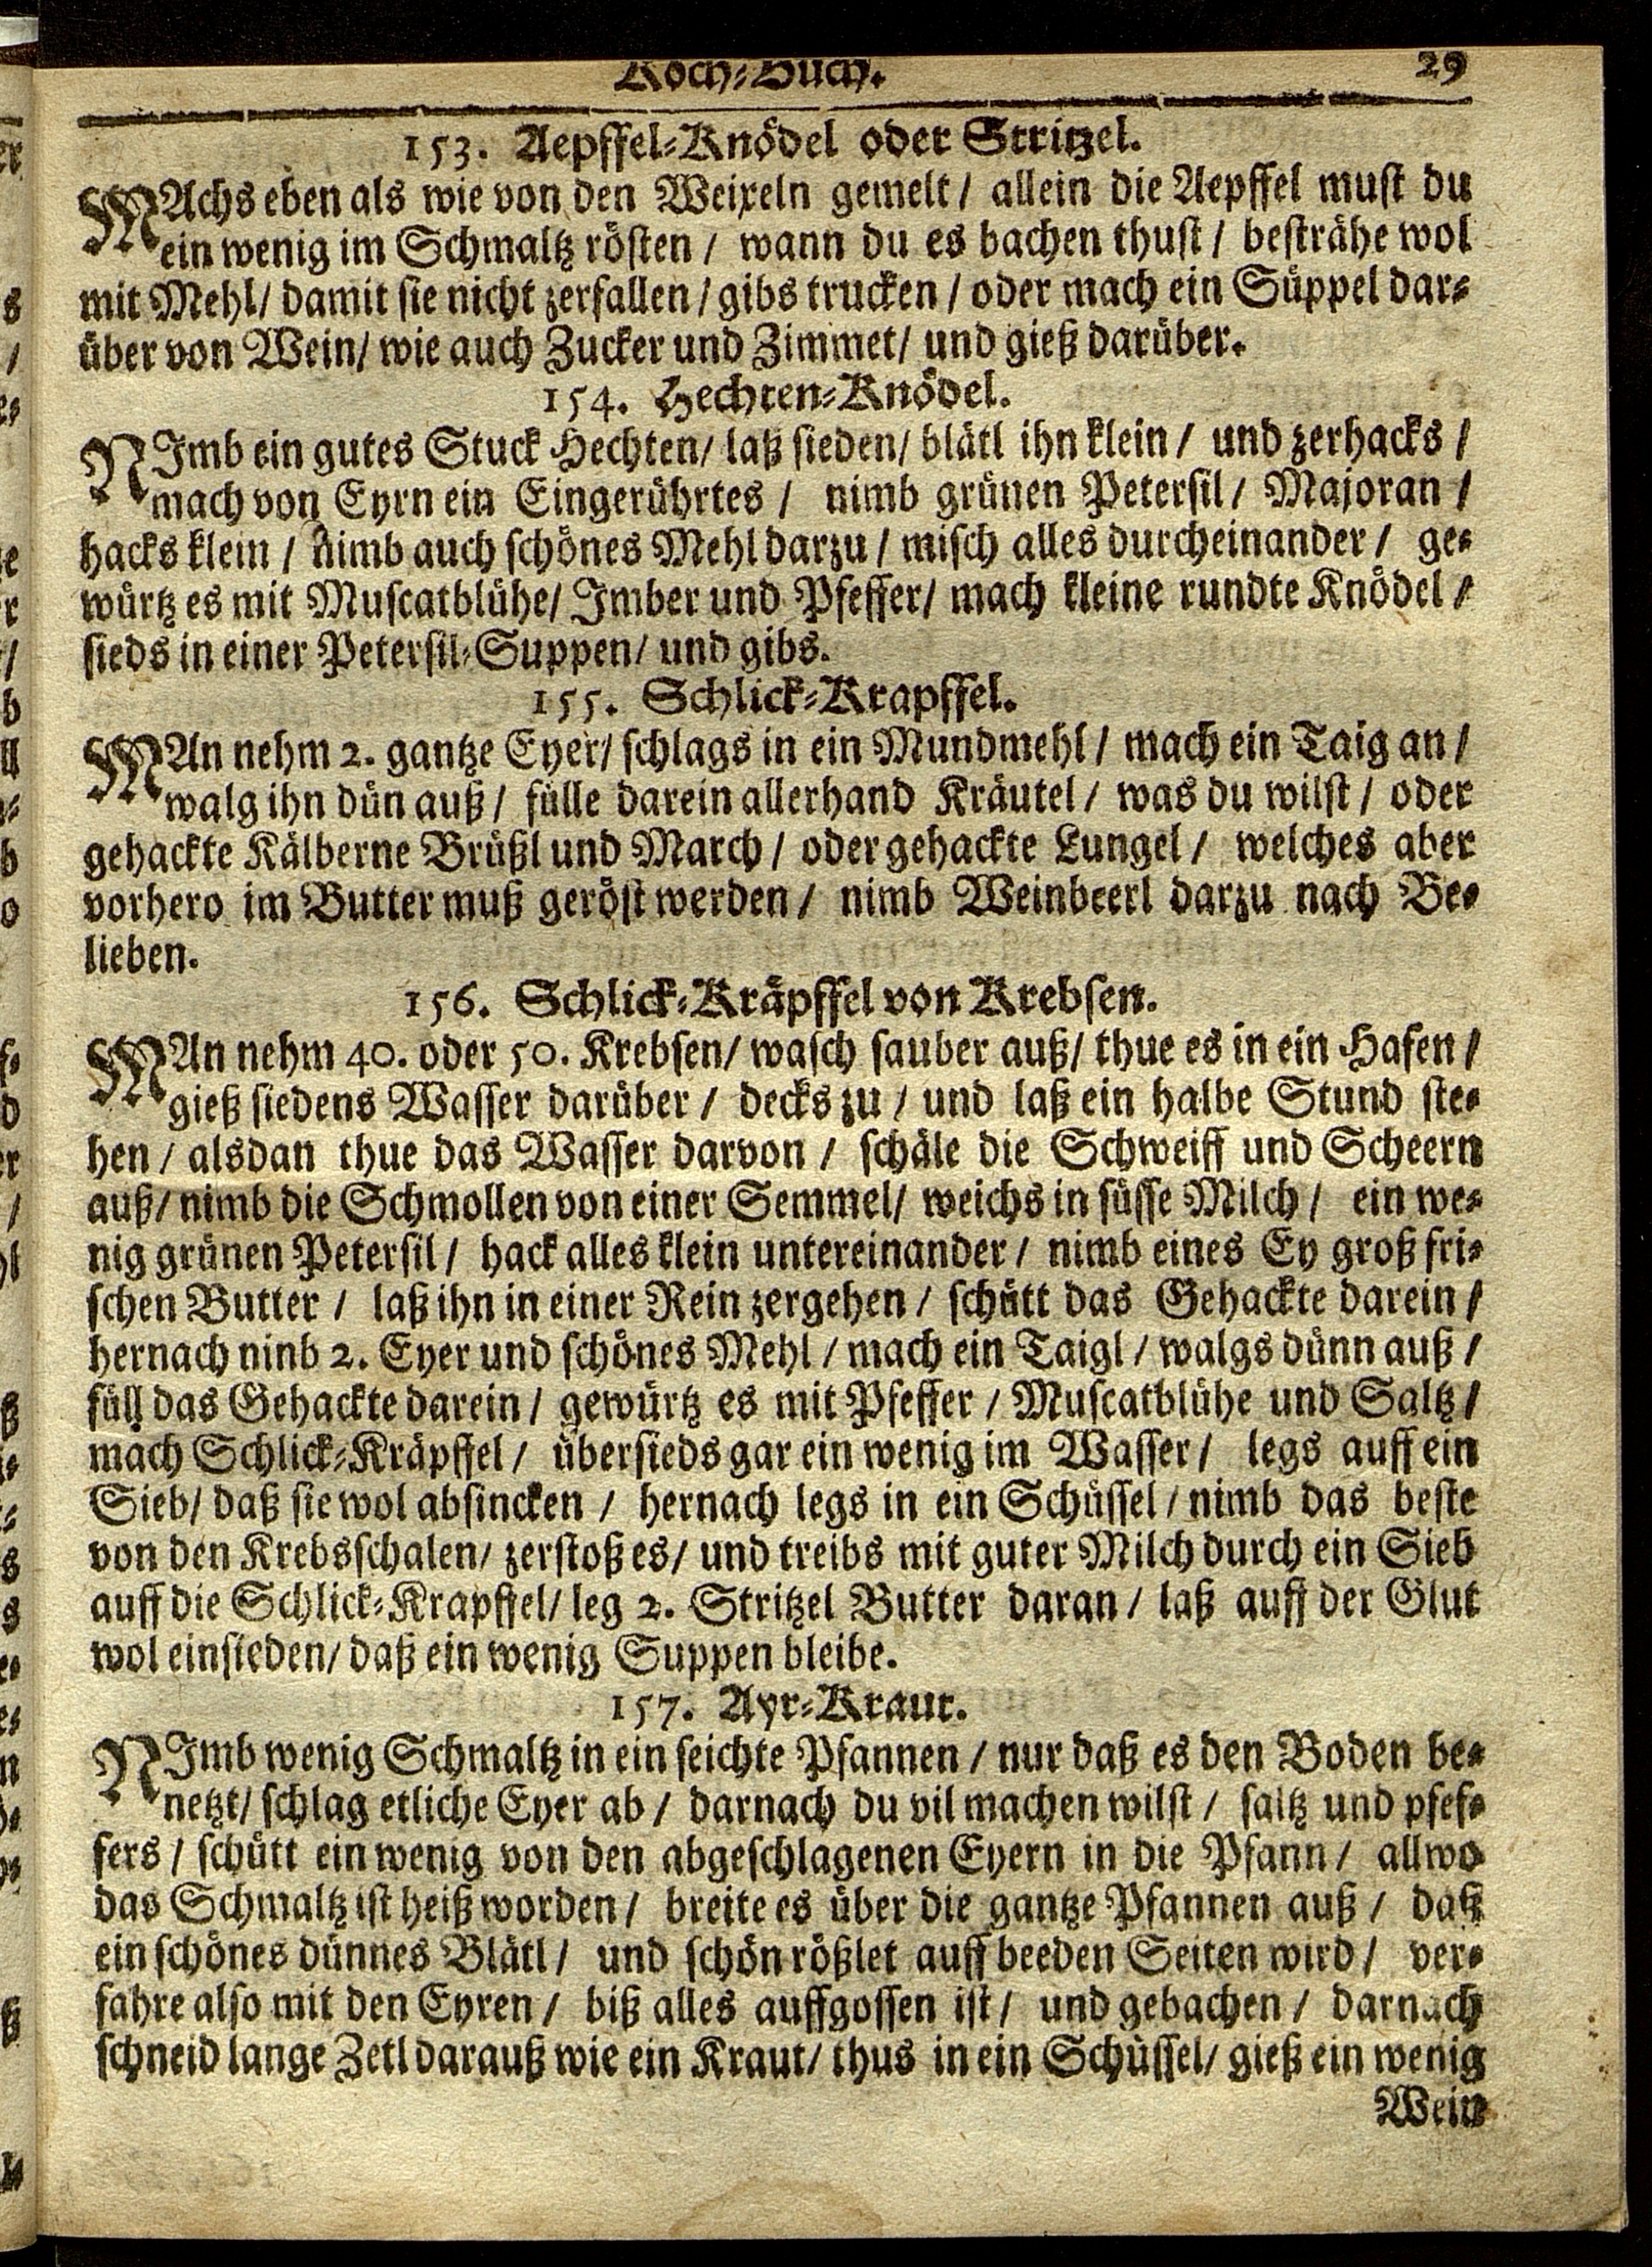 Koch-Buch. 29
153. Aepffel-Knödel oder Stritzel.
MAchs eben als wie von den Weixeln gemelt / allein die Aepffel must du
ein wenig im Schmaltz rösten / wann du es bachen thust / besträhe wol
mit Mehl / damit sie nicht zerfallen / gibs trucken / oder mach ein Süppel dar-
über von Wein / wie auch Zucker und Zimmet / und gieß darüber.
154. Hechten-Knödel.
NImb ein gutes Stuck Hechten / laß sieden / blätl ihn klein / und zerhacks /
mach von Eyrn ein Eingerührtes / nimb grünen Petersil / Majoran /
hacks klein / nimb auch schönes Mehl darzu / misch alles durcheinander / ge-
würtz es mit Muscatblühe / Imber und Pfeffer / mach kleine rundte Knödel /
sieds in einer Petersil-Suppen / und gibs.
155. Schlick-Krapffel.
MAn nehm 2. gantze Eyer / schlags in ein Mundmehl / mach ein Taig an /
walg ihn dün auß / fülle darein allerhand Kräutel / was du wilst / oder
gehackte Kälberne Brüßl und March / oder gehackte Lungel / welches aber
vorhero im Butter muß geröst werden / nimb Weinbeerl darzu nach Be-
lieben.
156. Schlick-Kräpffel von Krebsen.
MAn nehm 40. oder 50. Krebsen / wasch sauber auß / thue es in ein Hafen /
gieß siedens Wasser darüber / decks zu / und laß ein halbe Stund ste-
hen / alsdan thue das Wasser darvon / schäle die Schweiff und Scheern
auß / nimb die Schmollen von einer Semmel / weichs in süsse Milch / ein we-
nig grünen Petersil / hack alles klein untereinander / nimb eines Ey groß fri-
schen Butter / laß ihn in einer Rein zergehen / schütt das Gehackte darein /
hernach ninb 2. Eyer und schönes Mehl / mach ein Taigl / walgs dünn auß /
füll das Gehackte darein / gewürtz es mit Pfeffer / Muscatblühe und Saltz /
mach Schlick-Kräpffel / übersieds gar ein wenig im Wasser / legs auff ein
Sieb / daß sie wol absincken / hernach legs in ein Schüssel / nimb das beste
von den Krebsschalen / zerstoß es / und treibs mit guter Milch durch ein Sieb
auff die Schlick-Krapffel / leg 2. Stritzel Butter daran / laß auff der Glut
wol einsieden / daß ein wenig Suppen bleibe.
157. Ayr-Kraut.
NImb wenig Schmaltz in ein seichte Pfannen / nur daß es den Boden be-
netzt / schlag etliche Eyer ab / darnach du vil machen wilst / saltz und pfef-
fers / schütt ein wenig von den abgeschlagenen Eyern in die Pfann / allwo
das Schmaltz ist heiß worden / breite es über die gantze Pfannen auß / daß
ein schönes dünnes Blätl / und schön rößlet auff beeden Seiten wird / ver-
fahre also mit den Eyren / biß alles auffgossen ist / und gebachen / darnach
schneid lange Zetl darauß wie ein Kraut / thus in ein Schüssel / gieß ein wenig
Wein